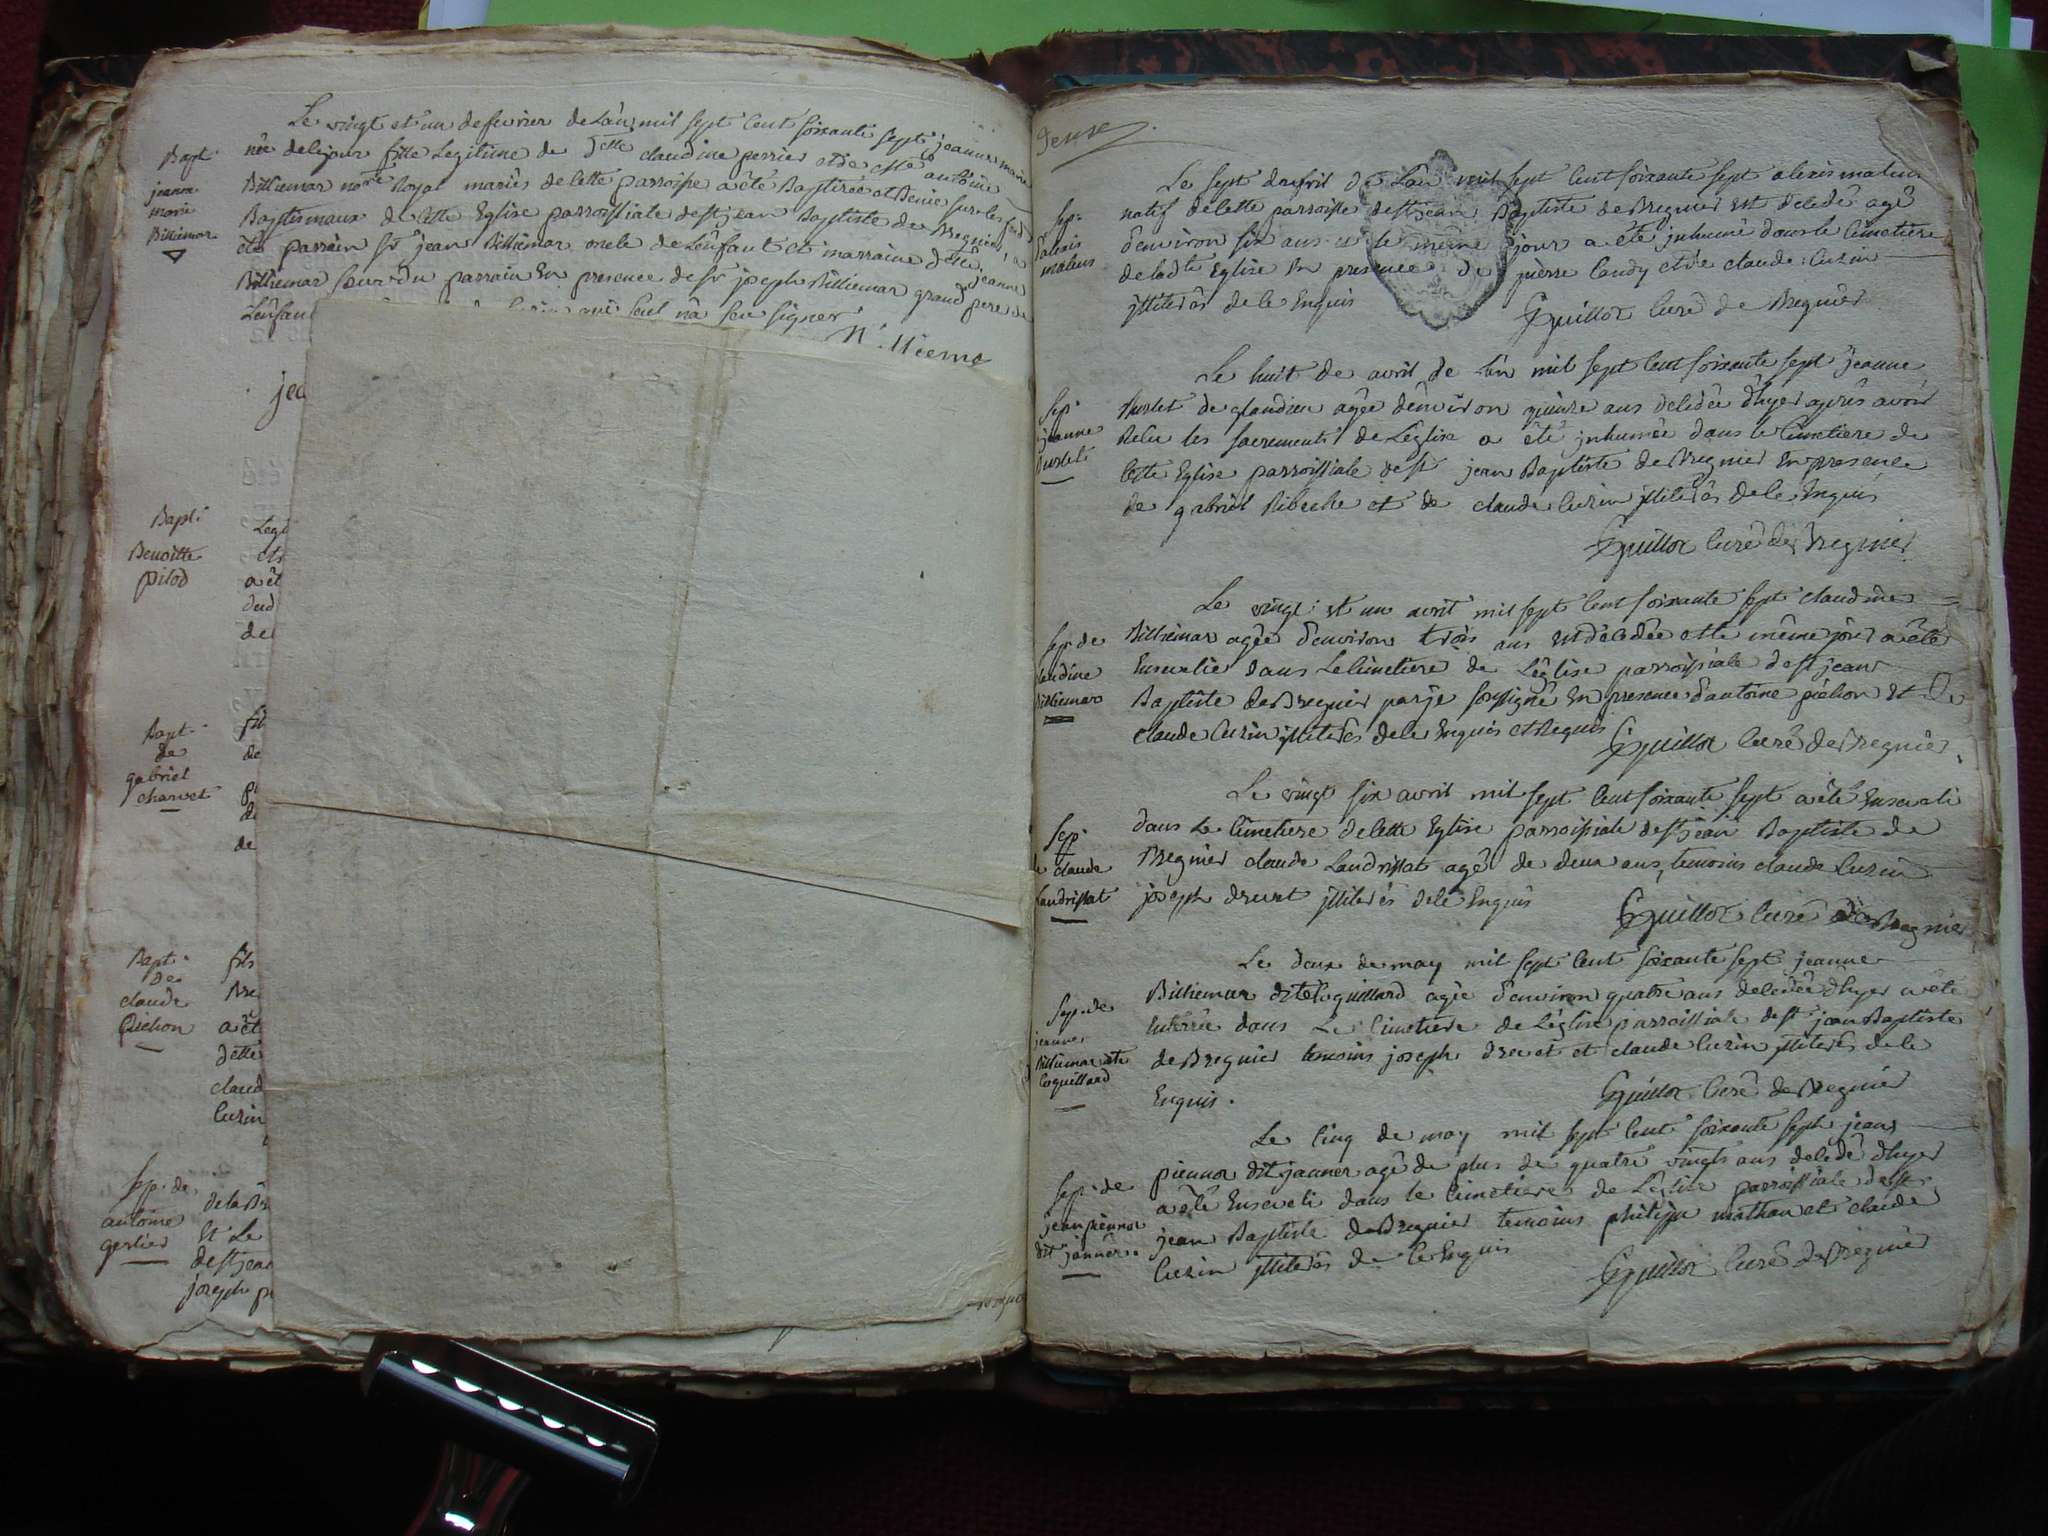 Le vingt et un de fevrier de L'an mil sept cent soixante sept jeanne marie
Bapt.
née dele jour fille Legitime de delle claudine perrier et de
jeanne
marie
Billiemar
Billiemar Royal mariés de cette parroisse a été Baptisée
Baptismaux de cette Eglise parroissiale de st jean Baptiste de Bregnier
été parrain sr jean Billiemar oncle de L'enfant et marraine delle jeanne
Billiemar soeur du parrain En presence de sr joseph Billiemar grand pere de
L'enfan qui seul n'a sceu signer
jea
Bapt.
Benoitte
pilod
Legi
a êt
dud
de
Bapt.
de
gabriel
charvet
fil
de
de
de
Bapt.
De
claude
pichon
fils
Bre
a êt
dette
claud
Curin
Sep. de
antoine
gerlier
de la
Et Le
de st jean
joseph p
Le sept d'avril de L'an mil sept cent soixante sept alexis
Sep.
natif de cette parroisse de st jean Baptiste de Bregnier est decedé agé
d'environ six ans et le même jour a été inhumé dans le Cimetiere
de lad.te Eglise En presence de pierre et de claude Curin
jlliterés de ce Enquis
Guillot Curé de Bregnier
Le huit de avril de L'an mil sept cent soixante sept jeanne
Sep.
jeanne
de glandieu agée d'environ quinze ans decedée d'hyer aprés avoir
Recu les sacrements de L'église a été jnhumée dans le Cimetiere de
cette Eglise parroissiale de st jean Baptiste de Bregnier En presence
de gabriel et de claude Curin jlliterés de ce Enquis
Guillot Curé de Bregnier
Le vingt et un avril mil sept cent soixante sept claudine
Sep. de
claudine
Billiemar
Billiemar agée d'environ trois ans est décédée et le même jour a été
Ensevelie dans Le Cimetiere de L'église parroissiale de st jean
Baptiste de Bregnier par je soussigné En presence d'antoine pichon et De
claude Curin jlliterés de ce Enquis et Requis
Guillot Curé de Bregnier
Le vingt six avril mil sept cent soixante sept a été Enseveli
Sep.
de claude
Landrissat
dans Le Cimetiere de cette Eglise parroissiale de st jean Baptiste de
Bregnier claude Landrissat agé de deux ans, temoins claude Curin
joseph drevet jlliterés de ce Enquis
Guillot Curé de Bregnier
Le deux de may mil sept cent soixante sept jeanne
Sep. de
jeanne
Billiemar dte
Coquillard
Billiemar dte Coquillard agée d'environ quatre ans decedée d'hyer a été
Enterrée dans Le Cimetiere de L'église parroissiale de st jean Baptiste
de Bregnier temoins joseph drevet et claude Curin jlliterés de ce
Enquis.
Guillot Curé de Bregnier
Le Cinq de may mil sept cent soixante sept jean
Sep. de
jean piennoz
dit janner
piennoz dit janner agé de plus de quatre vingts ans decedé d'hyer
a été Enseveli dans le Cimetiere de L'église parroissiale de st
jean Baptiste de Bregnier temoins philippe mathan et claude
Curin jlliterés de ce Enquis
Guillot Curé de Bregnier